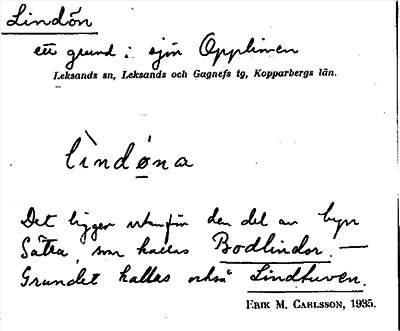 Lindön
ett grund i sjön Opplimen
Leksands sn, Leksands och Gagnefs tg, Kopparbergs län.
lìndøna
Det ligger utanför den del av byn
Sätra, som kallas Bodlindor. —
Grundet kallas också Lindtuven.
ERIK M. CARLSSON, 1935.